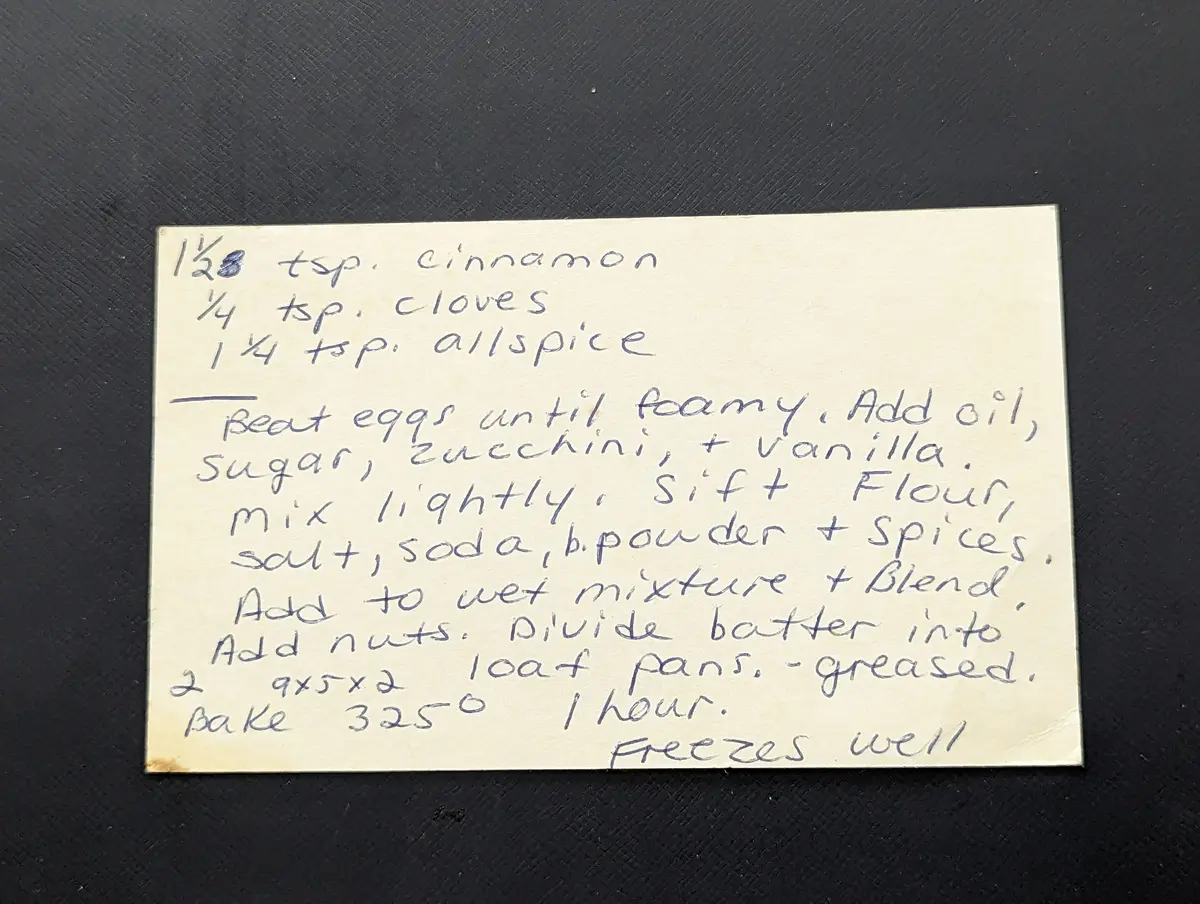 1 1/2 tsp. cinnamon
1/4 tsp. cloves
1 1/4 tsp. allspice
Beat eggs until foamy. Add oil,
sugar, zucchini, + vanilla.
mix lightly. Sift Flour,
salt, soda, b.powder + spices.
Add to wet mixture + Blend.
Add nuts. Divide batter into
2 9x5x2 loaf pans. - greased.
Bake 325° 1 hour.
Freezes well